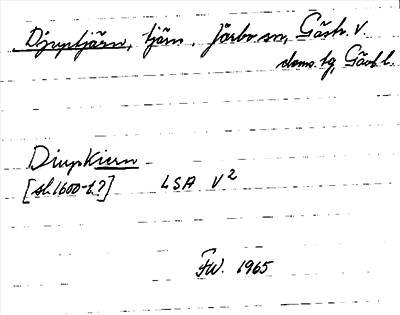 Djuptjärn, tjärn, Järbo sn, Gästr. v.
doms. tg, Gävleb. l.
Diupkiern
[sl. 1600-t.?] LSA V2
F.W. 1965